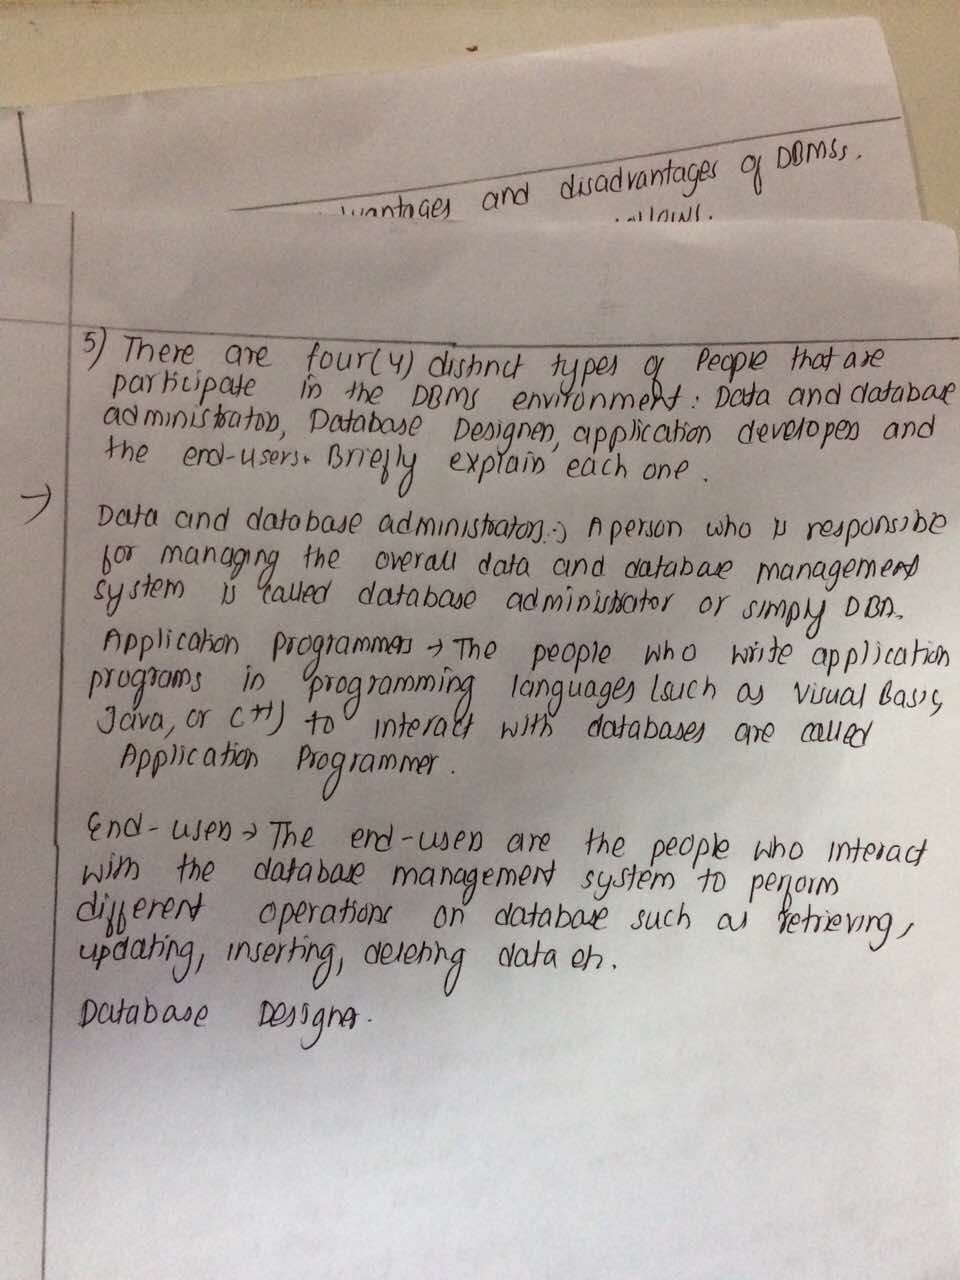 and disadvantages of DBMSs.
5) There are four(4) distinct types of People that are
participate in the DBMS environment: Data and database
administrators, Database Designers, application developers and
the end-users. Briefly explain each one.
→
Data and database administrators:→ A person who is responsible
for managing the overall data and database management
system is called database administrator or simply DBA.
Application Programmers → The people who write application
programs in programming languages (such as Visual Basic,
Java, or C++) to interact with databases are called
Application Programmer.
End-users → The end-users are the people who interact
with the database management system to perform
different operations on database such as retrieving,
updating, inserting, deleting data etc.
Database Designer.